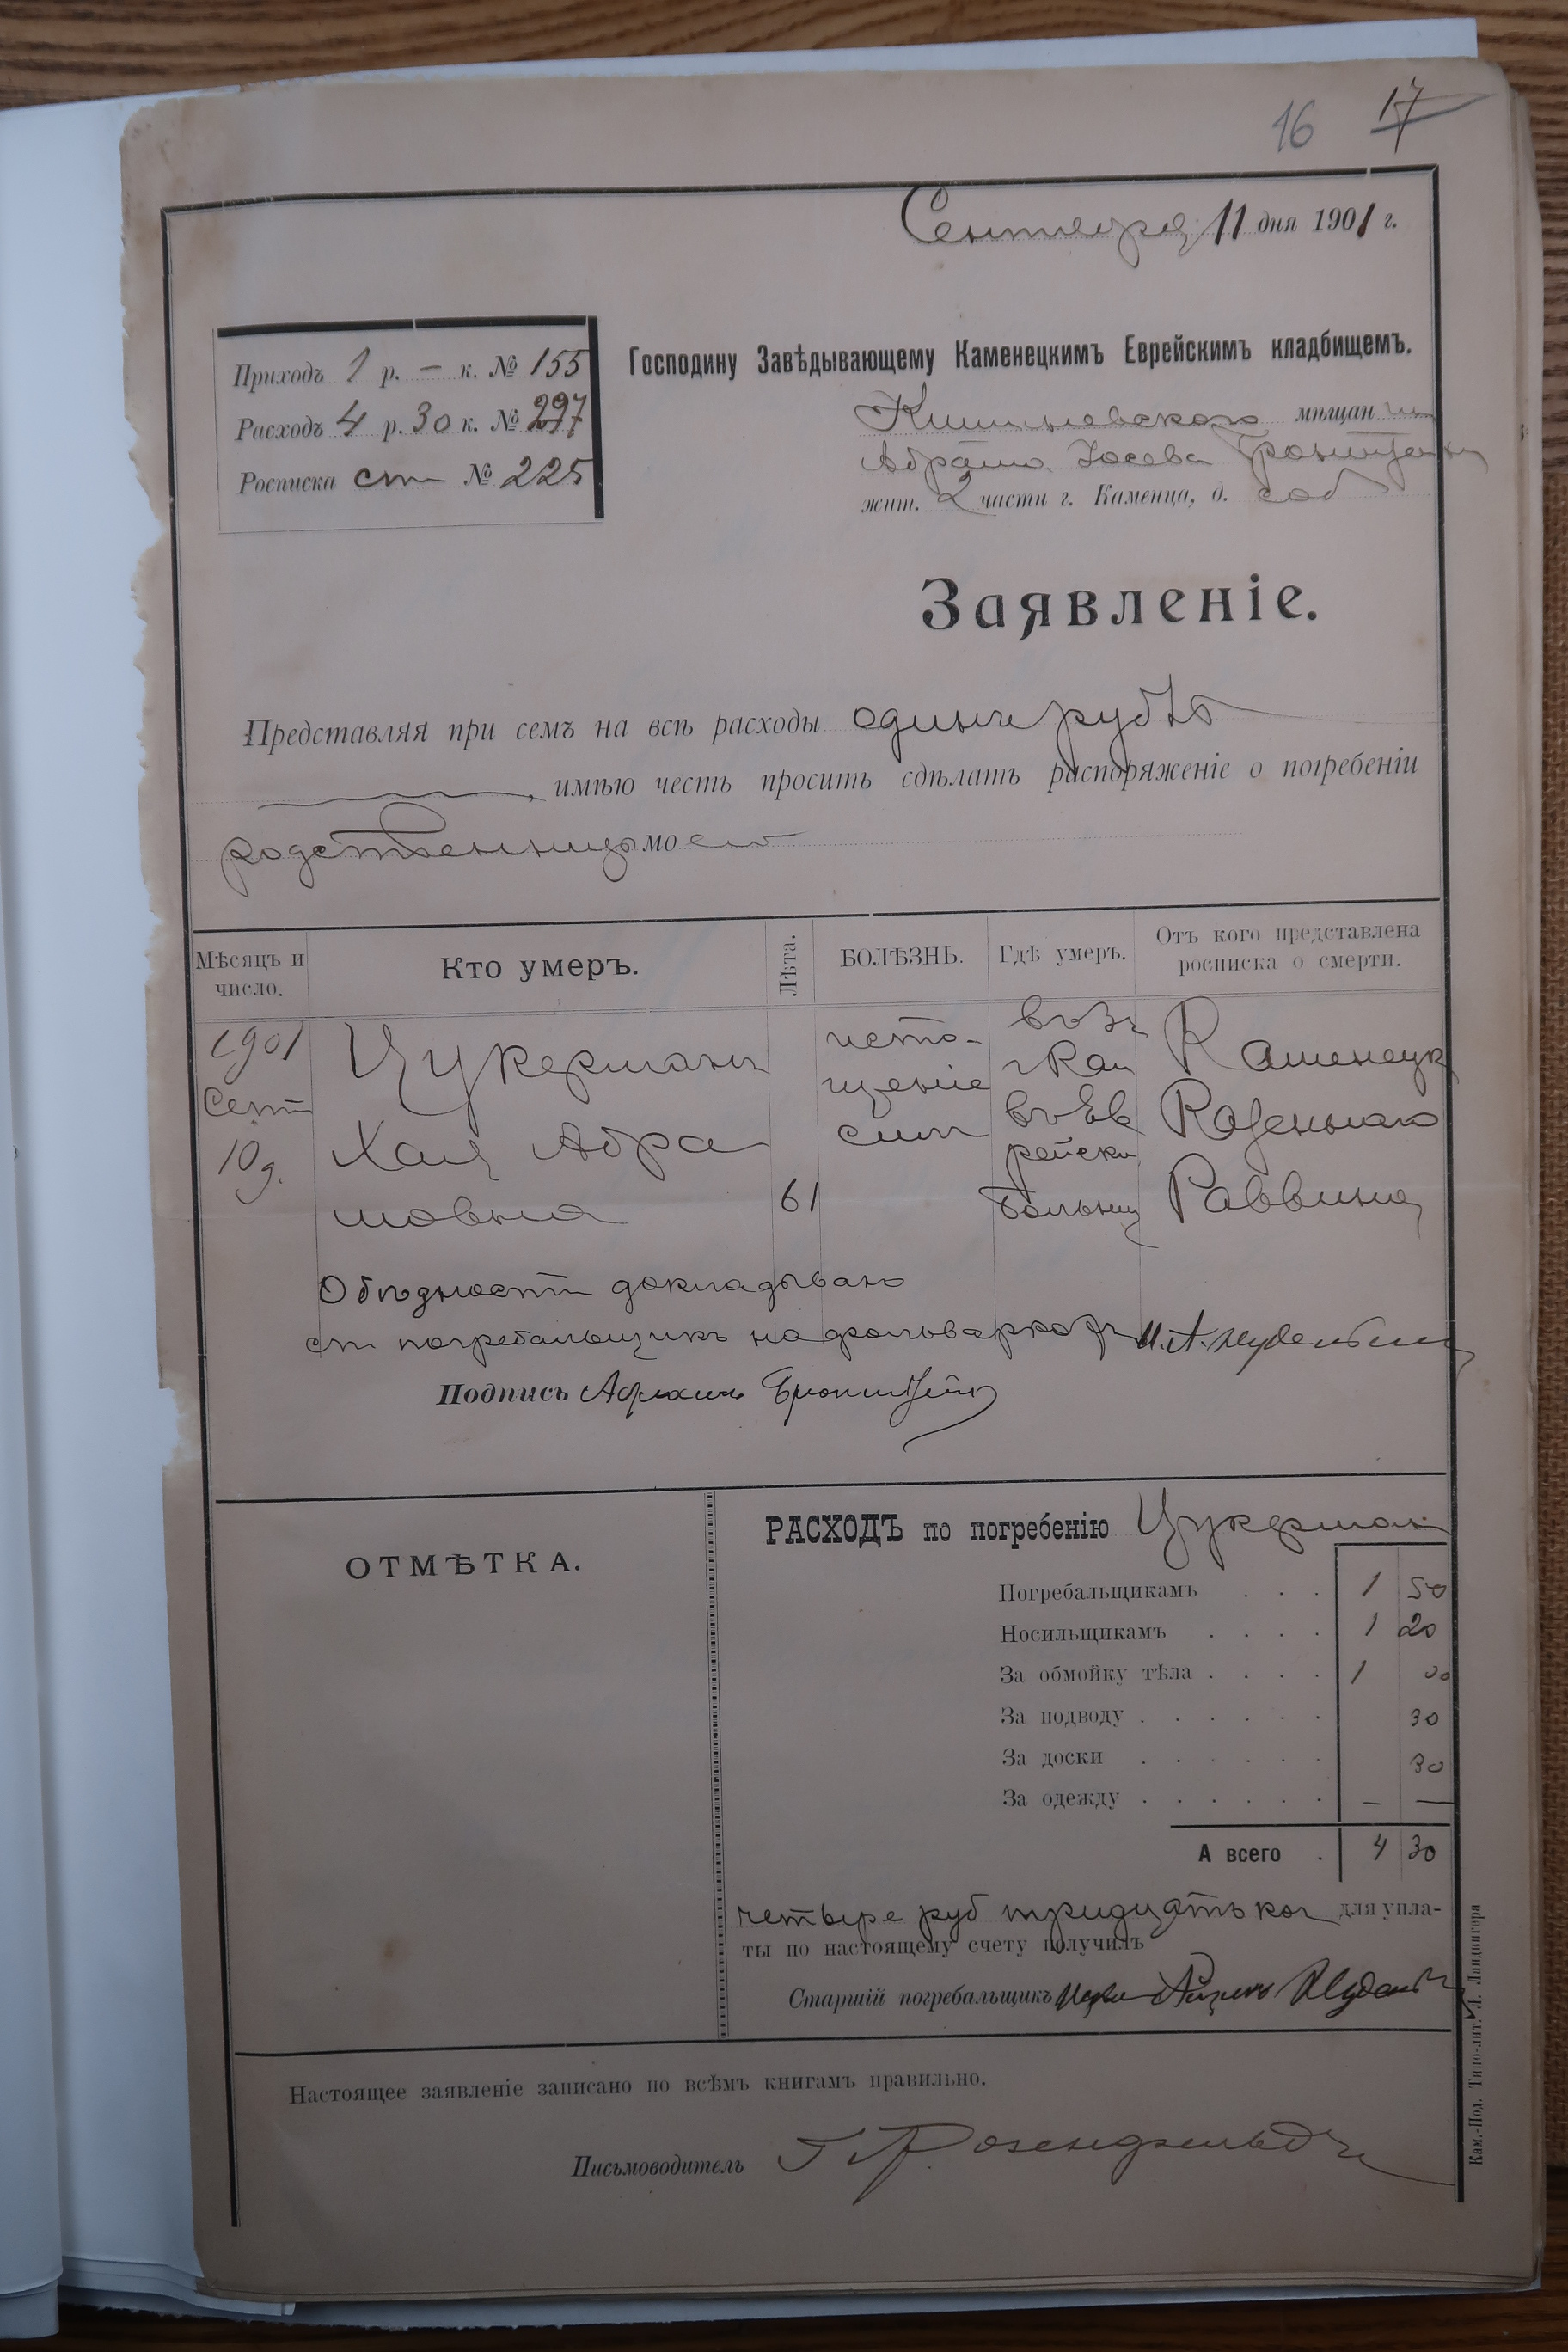 16 17
Сентября 11 дня 1901 г.
Приходъ 1 р. — к. № 155
Расходъ 4 р. 30 к. № 297
Росписка ст № 225
Господину Завѣдывающему Каменецкимъ Еврейскимъ кладбищемъ.
Кишиневского мѣщан
Абрама Іосева
жит. 2 части г. Каменца, д. соб
Заявленіе.
Представляя при семъ на всѣ расходы одинъ рубль
, имѣю честь просить сдѣлать распоряженіе о погребеніи
родственницы моей
Мѣсяцъ и число.
Кто умеръ.
Лѣта.
БОЛѢЗНЬ.
Гдѣ умеръ.
Отъ кого представлена росписка о смерти.
1901
Сент
10 д.
Цукерманъ
Хая Абра
мовна
61
исто-
щеніе
силъ
г Кам
въ Ев
рейской
больниц
Каменецк
Казеннаго
Раввина
О бѣдности докладывано
ст. погребальщикъ на фольваркахъ
Подпись Абрамъ Бронштейнъ
ОТМѢТКА.
РАСХОДЪ по погребенію Цукерман
Погребальщикамъ . . . 1 50
Носильщикамъ . . . . 1 20
За обмойку тѣла . . . . 1 00
За подводу . . . . . . 30
За доски . . . . . . 30
За одежду . . . . . . — —
А всего . 4 30
четыре руб тридцать коп для упла-
ты по настоящему счету получилъ
Старшій погребальщикъ
Настоящее заявленіе записано по всѣмъ книгамъ правильно.
Письмоводитель Розенфельдъ
Кам.-Под. Типо-лит. Л. Ландвигера